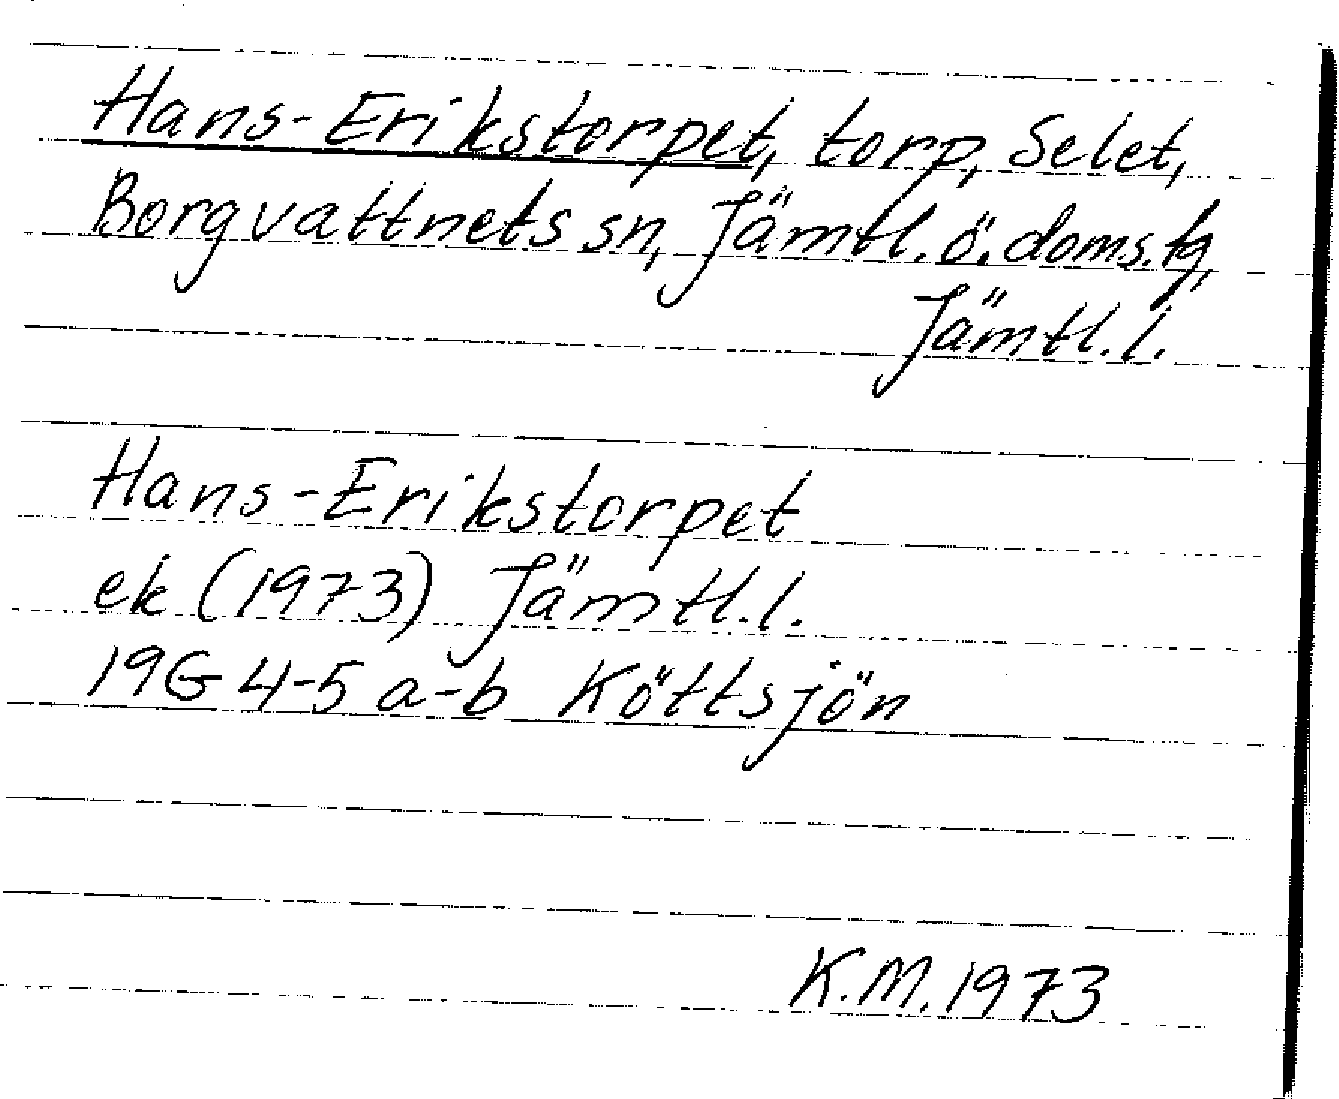 Hans-Erikstorpet, torp, Selet,
Borgvattnets sn, Jämtl. ö. doms. tg,
Jämtl. l.
Hans-Erikstorpet
ek (1973) Jämtl. l.
19G 4-5 a-b Köttsjön
K.M. 1973